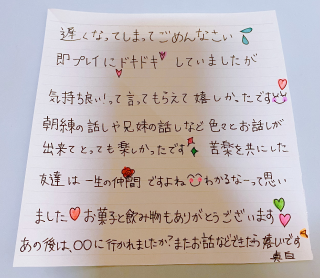 遅くなってしまってごめんなさい
即プレイにドキドキしていましたが
気持ち良い!って言ってもらえて嬉しかったです
朝練の話しや兄妹の話しなど色々とお話しが
出来てとっても楽しかったです 苦楽を共にした
友達は一生の仲間ですよね わかるなーって思い
ました お菓子と飲み物もありがとうございます
あの後は、〇〇に行かれましたか?またお話などできたら嬉しいです
真白